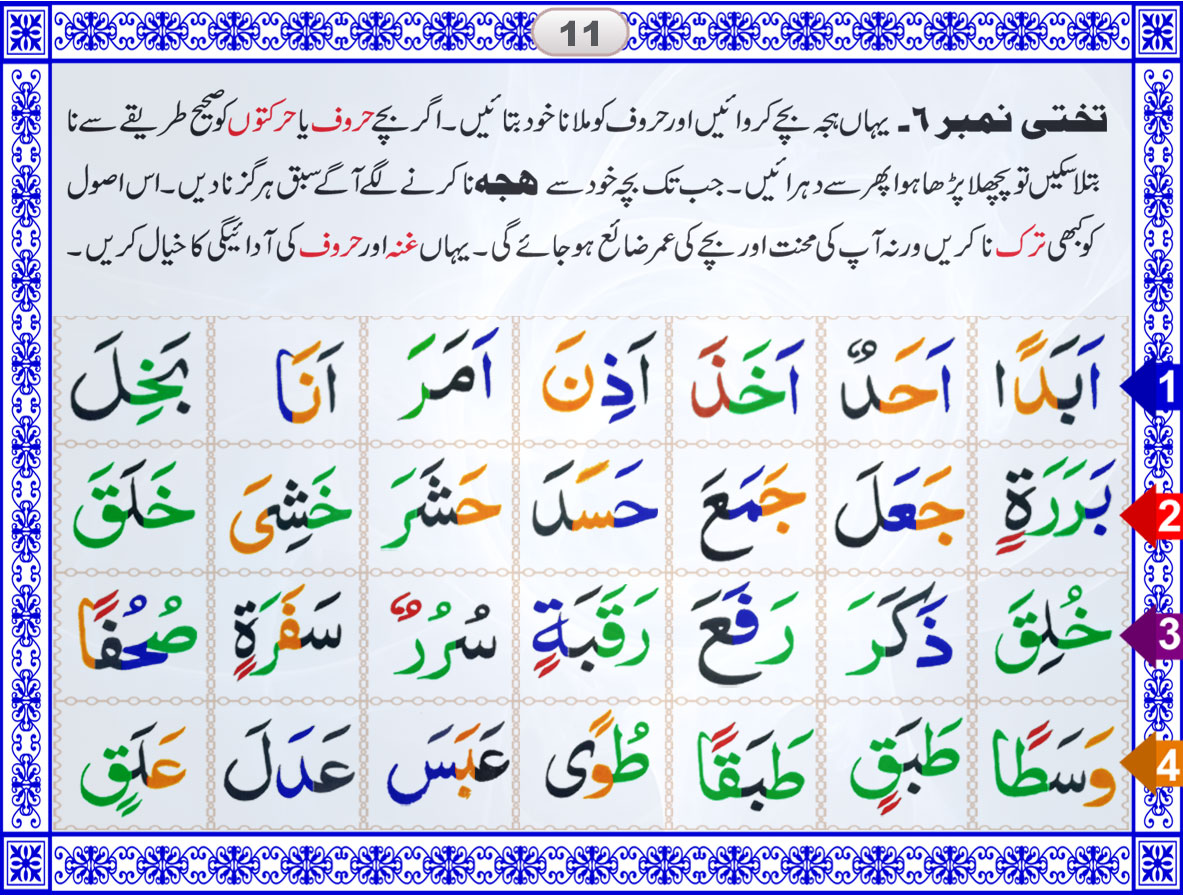 11
تختی نمبر ٦۔ یہاں ہجہ بچے کروائیں اور حروف کو ملانا خود بتائیں۔ اگر بچے حروف یا حرکتوں کو صحیح طریقے سے نا
بتلا سکیں تو پچھلا پڑھا ہوا پھر سے دہرائیں۔ جب تک بچہ خود سے ھجہ نا کرنے لگے آگے سبق ہرگز نا دیں۔ اس اصول
کو کبھی ترک نا کریں ورنہ آپ کی محنت اور بچے کی عمر ضائع ہو جائے گی۔ یہاں غنہ اور حروف کی آدائیگی کا خیال کریں۔
1 اَبَدًا اَحَدٌ اَخَذَ اَذِنَ اَمَرَ اَنَا بَخِلَ
2 بَرَرَةٍ جَعَلَ جَمَعَ حَسَدَ حَشَرَ خَشِىَ خَلَقَ
3 خُلِقَ ذَكَرَ رَفَعَ رَقَبَةٍ سُرُرٌ سَفَرَةٍ صُحُفًا
4 وَسَطًا طَبَقٍ طَبَقًا طُوًى عَبَسَ عَدَلَ عَلَقٍ